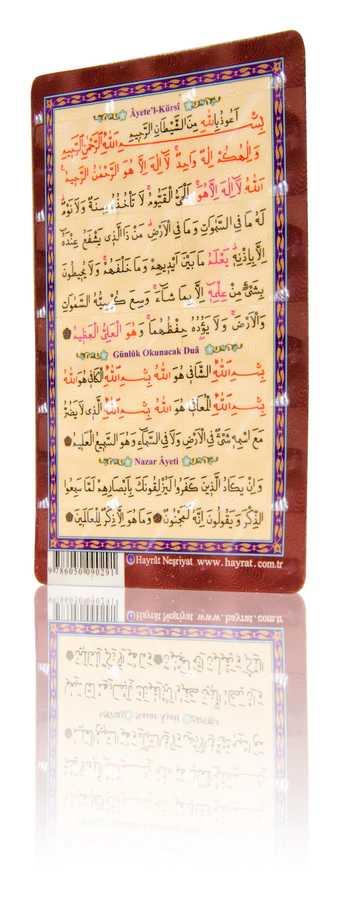 Âyete'l-Kürsî
اَعُوذُ بِاللّٰهِ مِنَ الشَّيْطَانِ الرَّجِيمِ
بِسْمِ اللّٰهِ الرَّحْمٰنِ الرَّحِيمِ
وَاِلٰهُكُمْ اِلٰهٌ وَاحِدٌ لَا اِلٰهَ اِلَّا هُوَ الرَّحْمٰنُ الرَّحِيمُ
اَللّٰهُ لَا اِلٰهَ اِلَّا هُوَ اَلْحَىُّ الْقَيُّومُ لَا تَاْخُذُهُ سِنَةٌ وَلَا نَوْمٌ
لَهُ مَا فِى السَّمٰوَاتِ وَمَا فِى الْاَرْضِ مَنْ ذَا الَّذِى يَشْفَعُ عِنْدَهُ
اِلَّا بِاِذْنِهِ يَعْلَمُ مَا بَيْنَ اَيْدِيهِمْ وَمَا خَلْفَهُمْ وَلَا يُحِيطُونَ
بِشَىْءٍ مِنْ عِلْمِهِ اِلَّا بِمَا شَاءَ وَسِعَ كُرْسِيُّهُ السَّمٰوَاتِ
وَالْاَرْضَ وَلَا يَؤُدُهُ حِفْظُهُمَا وَهُوَ الْعَلِىُّ الْعَظِيمُ
Günlük Okunacak Duâ
بِسْمِ اللّٰهِ الشَّافِى هُوَ اللّٰهُ بِسْمِ اللّٰهِ الْكَافِى هُوَ اللّٰهُ
بِسْمِ اللّٰهِ الْمُعَافِى هُوَ اللّٰهُ بِسْمِ اللّٰهِ الَّذِى لَا يَضُرُّ
مَعَ اسْمِهِ شَىْءٌ فِى الْاَرْضِ وَلَا فِى السَّمَاءِ وَهُوَ السَّمِيعُ الْعَلِيمُ
Nazar Âyeti
وَاِنْ يَكَادُ الَّذِينَ كَفَرُوا لَيُزْلِقُونَكَ بِاَبْصَارِهِمْ لَمَّا سَمِعُوا
الذِّكْرَ وَيَقُولُونَ اِنَّهُ لَمَجْنُونٌ وَمَا هُوَ اِلَّا ذِكْرٌ لِلْعَالَمِينَ
Hayrât Neşriyat www.hayrat.com.tr
9786050090291